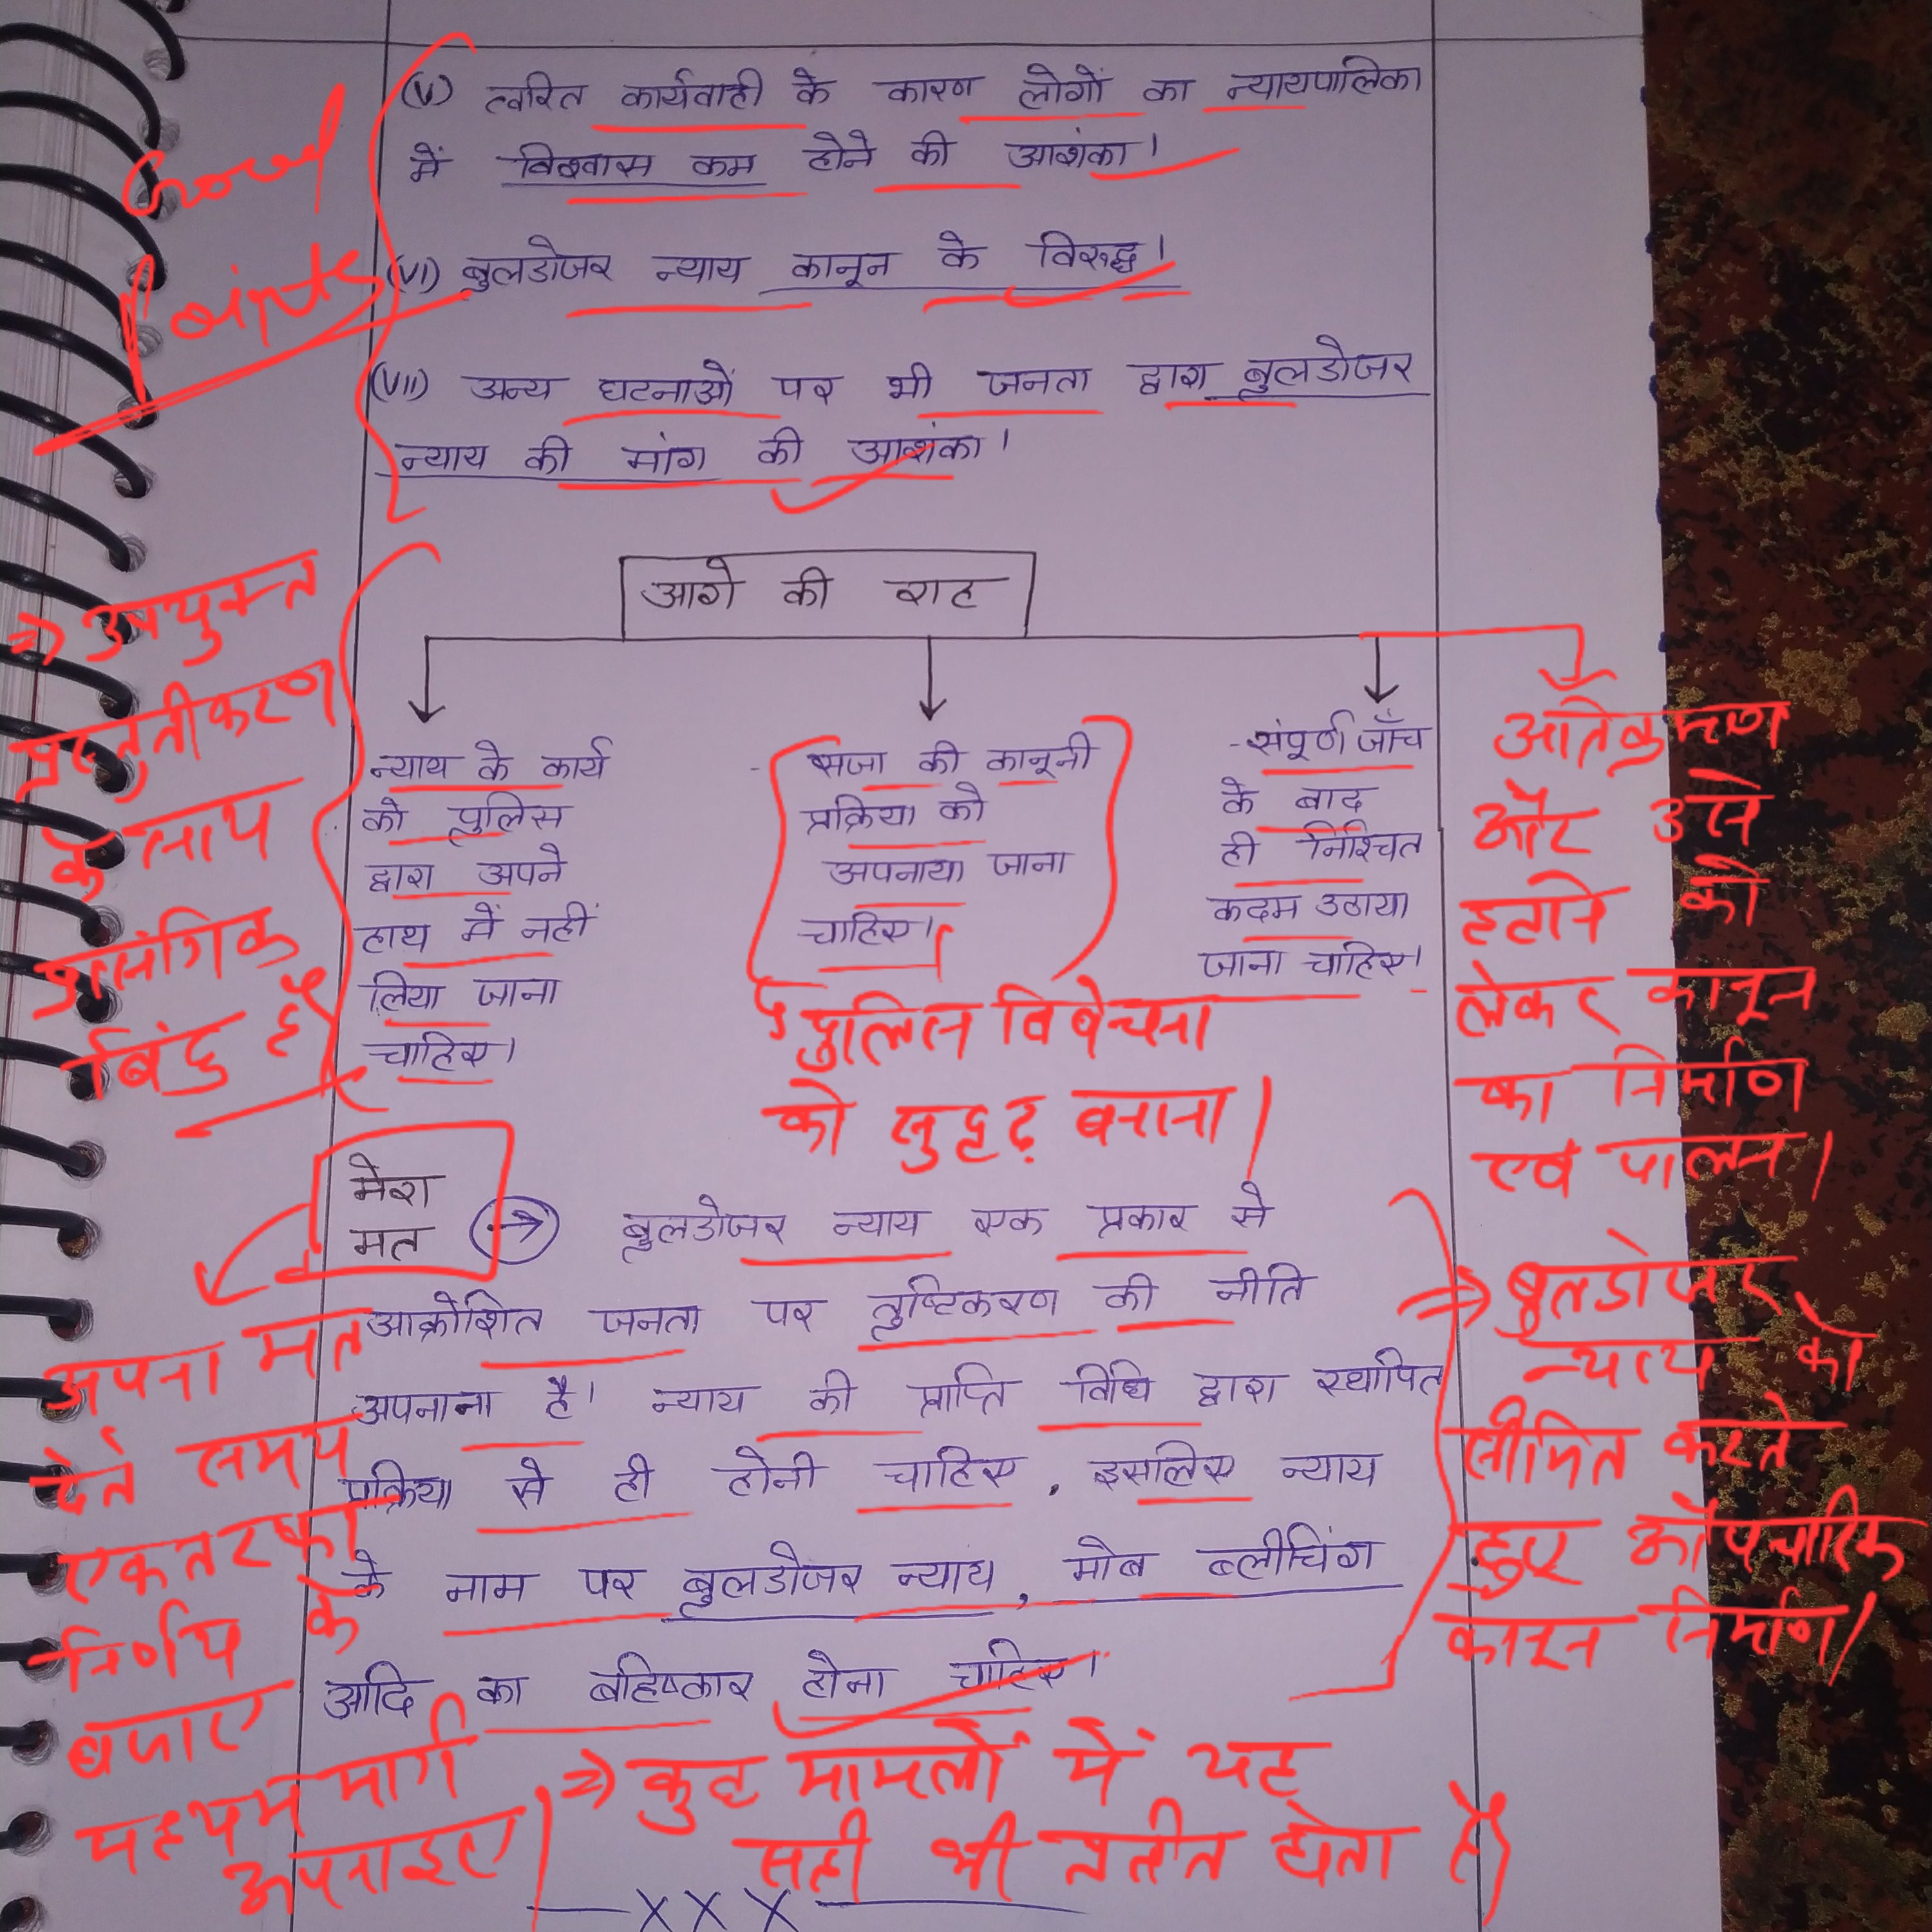 (V) त्वरित कार्यवाही के कारण लोगों का न्यायपालिका
में विश्वास कम होने की आशंका।
(VI) बुलडोजर न्याय कानून के विरुद्ध।
(VII) अन्य घटनाओं पर भी जनता द्वारा बुलडोजर
न्याय की मांग की आशंका।
Good
Points
आगे की राह
न्याय के कार्य
को पुलिस
द्वारा अपने
हाथ में नहीं
लिया जाना
चाहिए।
- सजा की कानूनी
प्रक्रिया को
अपनाया जाना
चाहिए।
पुलिस विवेचना
को सुदृढ़ बनाना।
- संपूर्ण जाँच
के बाद
ही निश्चित
कदम उठाया
जाना चाहिए।
अतिक्रमण
और उसे
हटाने को
लेकर कानून
का निर्माण
एवं पालन।
⇒ उपयुक्त
प्रस्तुतीकरण
के साथ
प्रासंगिक
बिंदु हैं।
मेरा
मत → बुलडोजर न्याय एक प्रकार से
आक्रोशित जनता पर तुष्टिकरण की नीति
अपनाना है। न्याय की प्राप्ति विधि द्वारा स्थापित
प्रक्रिया से ही होनी चाहिए, इसलिए न्याय
के नाम पर बुलडोजर न्याय, मोब ब्लीचिंग
आदि का बहिष्कार होना चाहिए।
अपना मत
देते समय
एकतरफा
निर्णय के
बजाए
मध्यम मार्ग
अपनाइए।
⇒ बुलडोजर
न्याय को
सीमित करते
हुए औपचारिक
कानून निर्माण।
⇒ कुछ मामलों में यह
सही भी प्रतीत होता है।
—XXX—